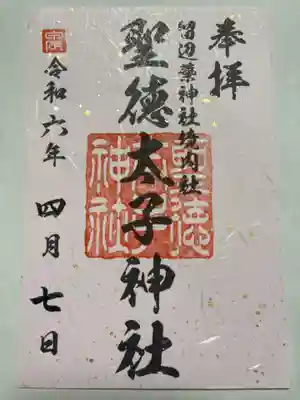 奉拝
留辺蘂神社境内社
聖徳太子神社
令和六年
四月七日
聖徳
太子
神社